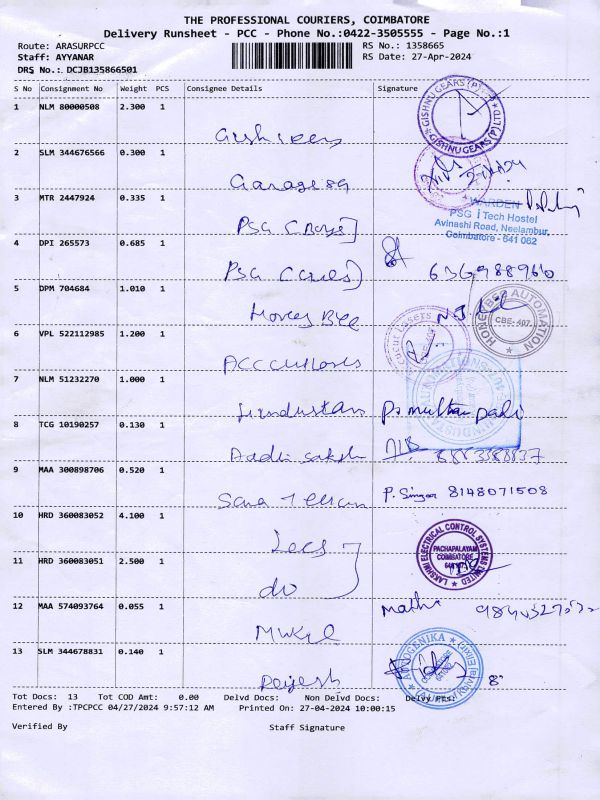 THE PROFESSIONAL COURIERS, COIMBATORE
Delivery Runsheet - PCC - Phone No.:0422-3505555 - Page No.:1
Route: ARASURPCC RS No.: 1358665
Staff: AYYANAR RS Date: 27-Apr-2024
DRS No.: DCJB135866501
S No Consignment No Weight PCS Consignee Details Signature
1 NLM 80000508 2.300 1
GISHNU GEARS (P) LTD
2 SLM 344676566 0.300 1
Garage 89
3 MTR 2447924 0.335 1
PSG (Boys)
WARDEN
PSG iTech Hostel
Avinashi Road, Neelambur,
Coimbatore - 641 062
4 DPI 265573 0.685 1
PSG
5 DPM 704684 1.010 1
Honey Bee
HONEYBEE AUTOMATION
CBE- 407.
6 VPL 522112985 1.200 1
Lasers
7 NLM 51232270 1.000 1
Hindustan
8 TCG 10190257 0.130 1
Aadhi
9 MAA 300898706 0.520 1
Sara
P. Singar 8148071508
10 HRD 360083052 4.100 1
Lecs
LAKSHMI ELECTRICAL CONTROL SYSTEMS LIMITED
PACHAPALAYAM
COIMBATORE
11 HRD 360083051 2.500 1
do
12 MAA 574093764 0.055 1
13 SLM 344678831 0.140 1
Rejesh
Tot Docs: 13 Tot COD Amt: 0.00 Delvd Docs: Non Delvd Docs: Delvy Pts:
Entered By :TPCPCC 04/27/2024 9:57:12 AM Printed On: 27-04-2024 10:00:15
Verified By Staff Signature